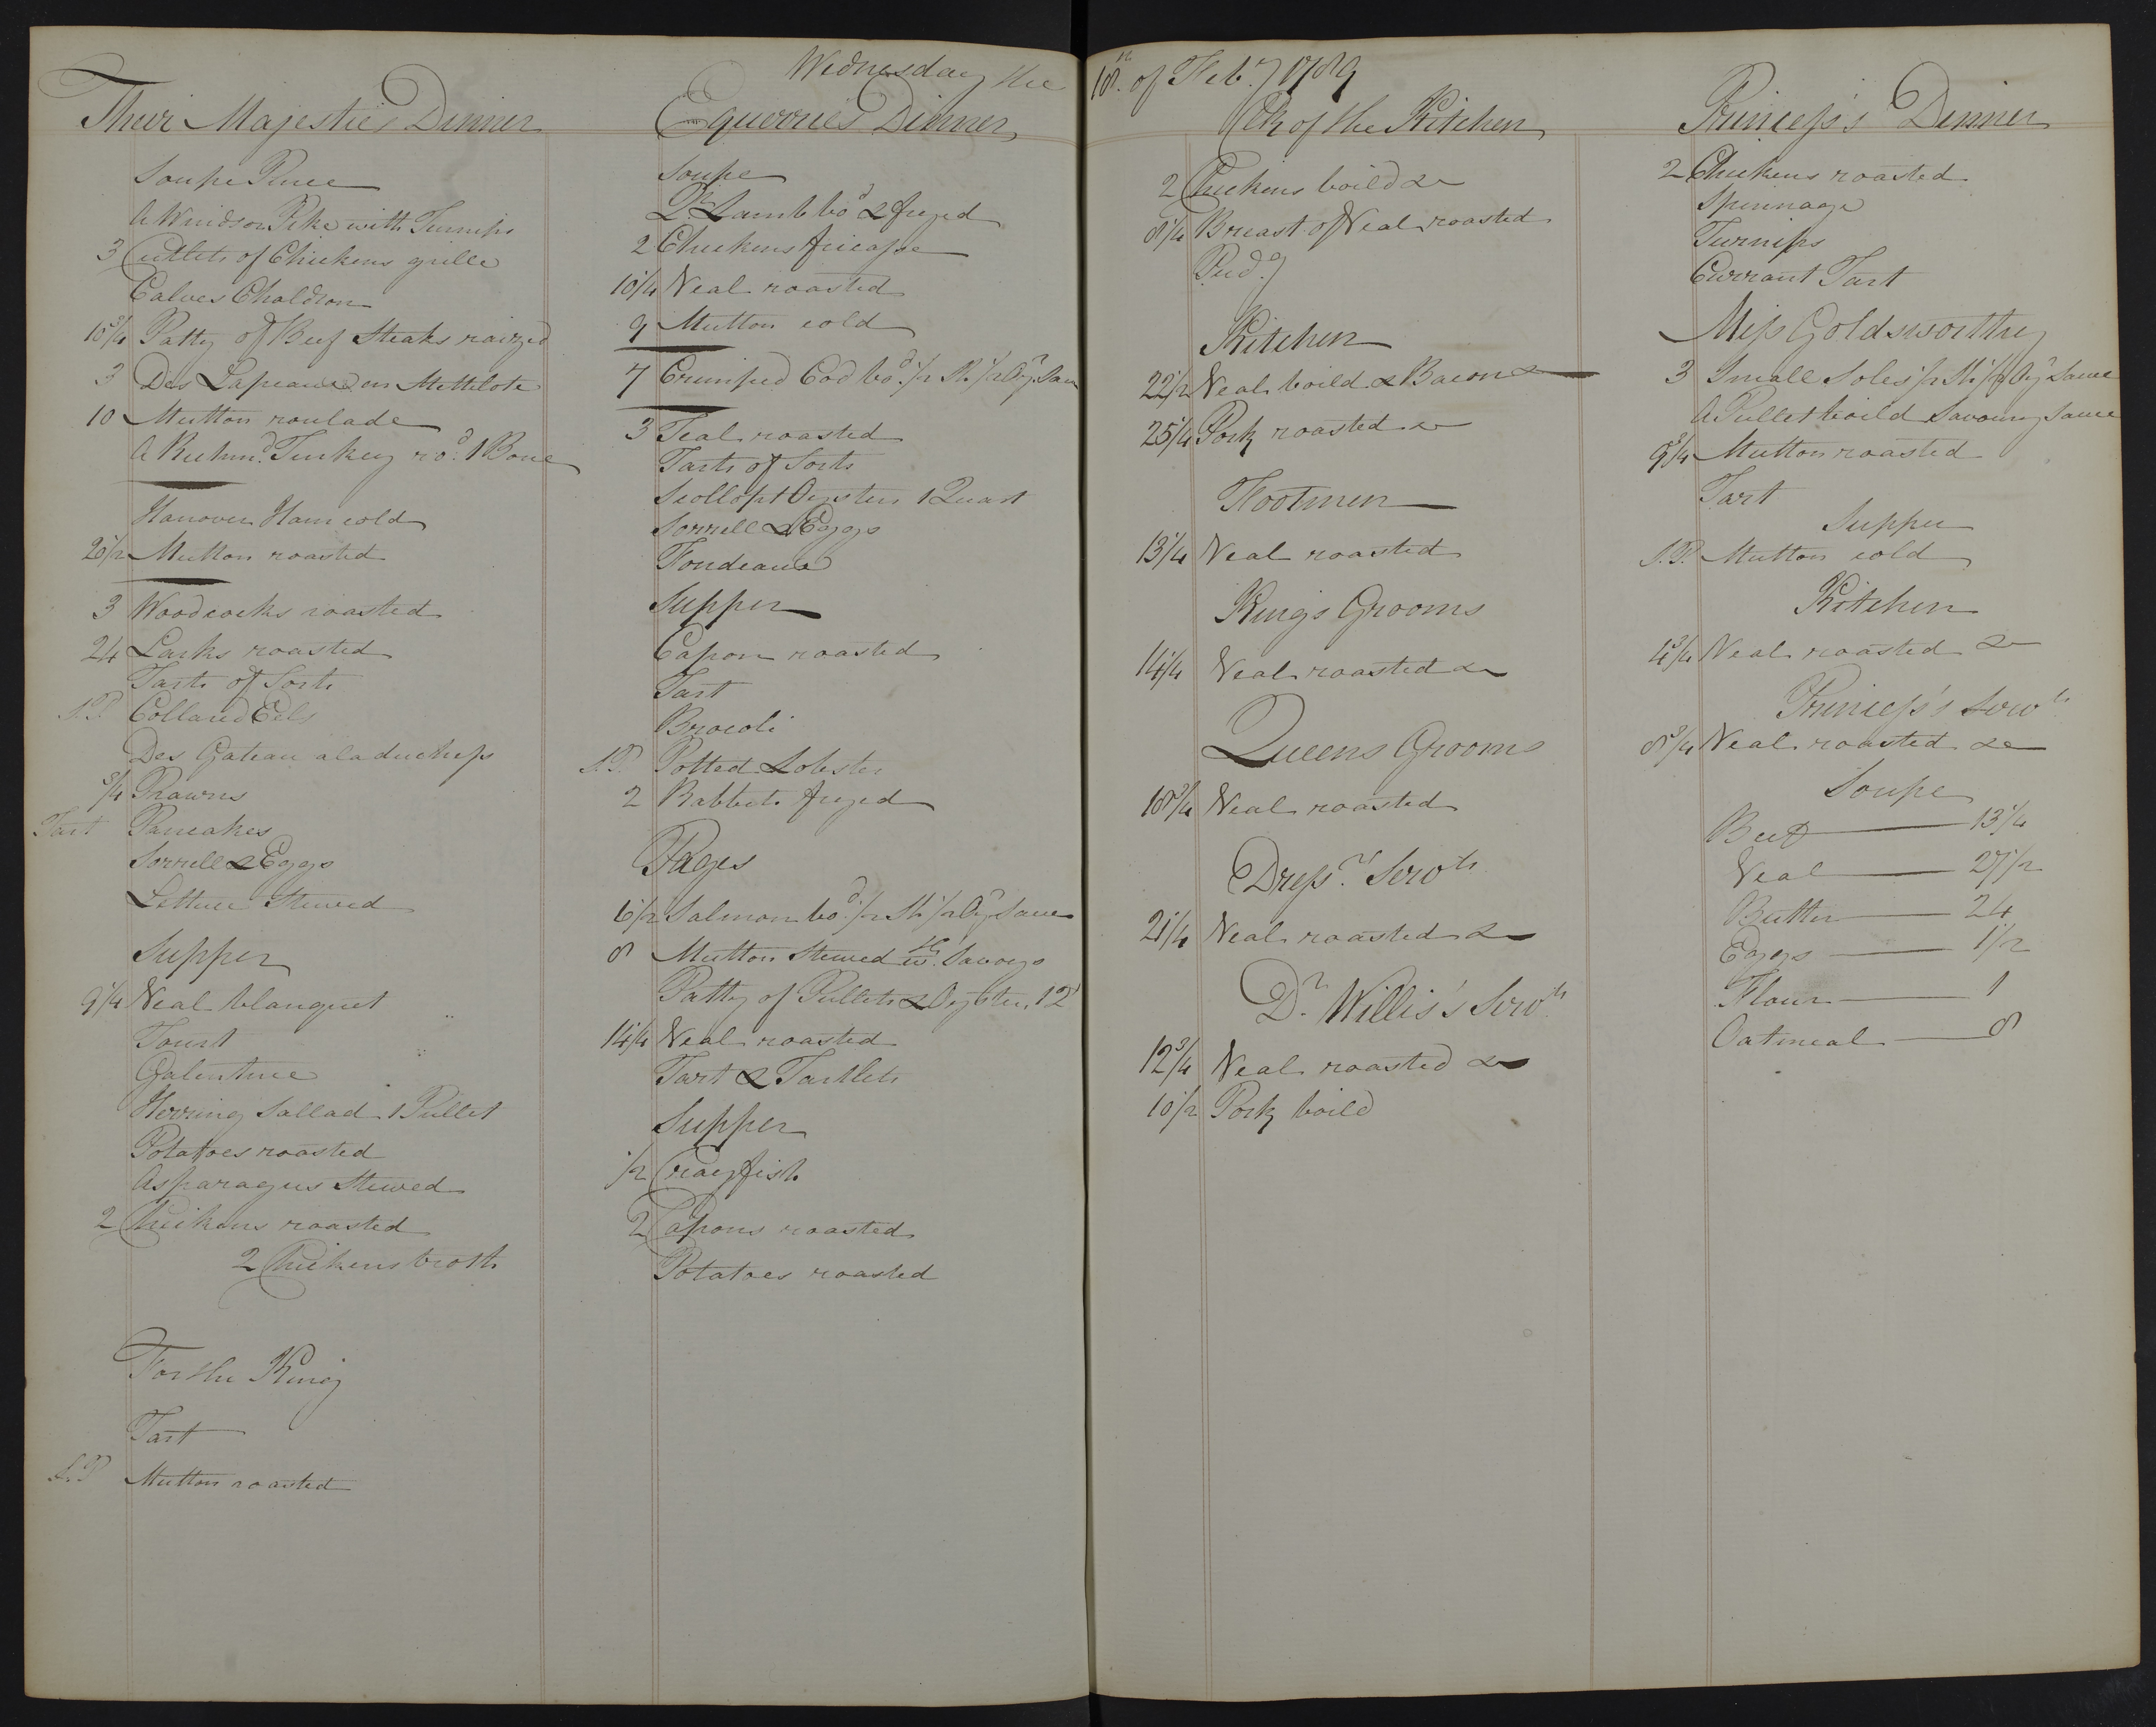 Wednesday the 18th. of Feb.y 1789
Their Majesties Dinner
Soupe Puree
A Windsor Pike with Turnips
3 Cutlets of Chickens grille
Calves Chaldron
10 3/4 Patty of Beef Steaks raized
3 Des Lapeaux en Mettilote
10 Mutton roulade
A Richmd. Turkey rod. 1 Bone
Hanover Ham cold
26 1/2 Mutton roasted
3 Woodcocks roasted
24 Larks roasted
Tarts of Sorts
S.P. Collard Eels
Des Gateau a la duchess
3/4 Prawns
Tart Pancakes
Sorrell & Eggs
Lettuce Stewed
Supper
9 1/4 Veal blanquet
Tourt
Galentine
Herring Sallad 1 Pullet
Potatoes roasted
Asparagus Stewed
2 Chickens roasted
2 Chickens broth
For the King
Tart
S.P. Mutton roasted
Equerries Dinner
Soupe
Qr. Lamb bod. & fryed
2 Chickens fricasse
10 1/4 Veal roasted
9 Mutton cold
7 Crimped Cod bod. 1/2 Sh. 1/2 Oyr. Sau
3 Teal roasted
Tarts of Sorts
Scollopt Oysters 1 Quart
Sorrell & Eggs
Fondeaux
Supper
Capon roasted
Tart
Brocoli
S.P. Potted Lobster
2 Rabbits fryed
Pages
6 1/2 Salmon bod. 1/2 Sh. 1/2 Oyr. Sauce
8 Mutton Stewed wth. Savoys
Patty of Pullets & Oysters 1 Qt
14 1/4 Veal roasted
Tart & Tartlets
Supper
1/2 Crayfish
2 Capons roasted
Potatoes roasted
Clk of the Kitchen
2 Chickens boild &c
8 1/4 Breast of Veal roasted
Pud.g
Kitchen
22 1/2 Veal boild & Bacon &c
25 1/4 Pork roasted &c
Footmen
13 1/4 Veal roasted
Kings Grooms
14 1/4 Veal roasted &c
Queens Grooms
18 3/4 Veal roasted
Dressrs. Servts.
21 1/4 Veal roasted &c
Dr. Willis's Servts.
12 3/4 Veal roasted &c
10 1/2 Pork boild
Princess's Dinner
2 Chickens roasted
Spinnage
Turnips
Currant Tart
Miss Goldsworthy
3 Small Soles 1/2 Sh. 1/2 Oyr. Sauce
A Pullet boild Savoury Sauce
9 3/4 Mutton roasted
Tart
Supper
S.P. Mutton cold
Kitchen
Veal roasted &c
Princess's Servts.
8 3/4 Veal roasted &c
Soupe
Beef 13 1/4
Veal 27 1/2
Butter 24
Eggs 1/2
Flour 1
Oatmeal 8